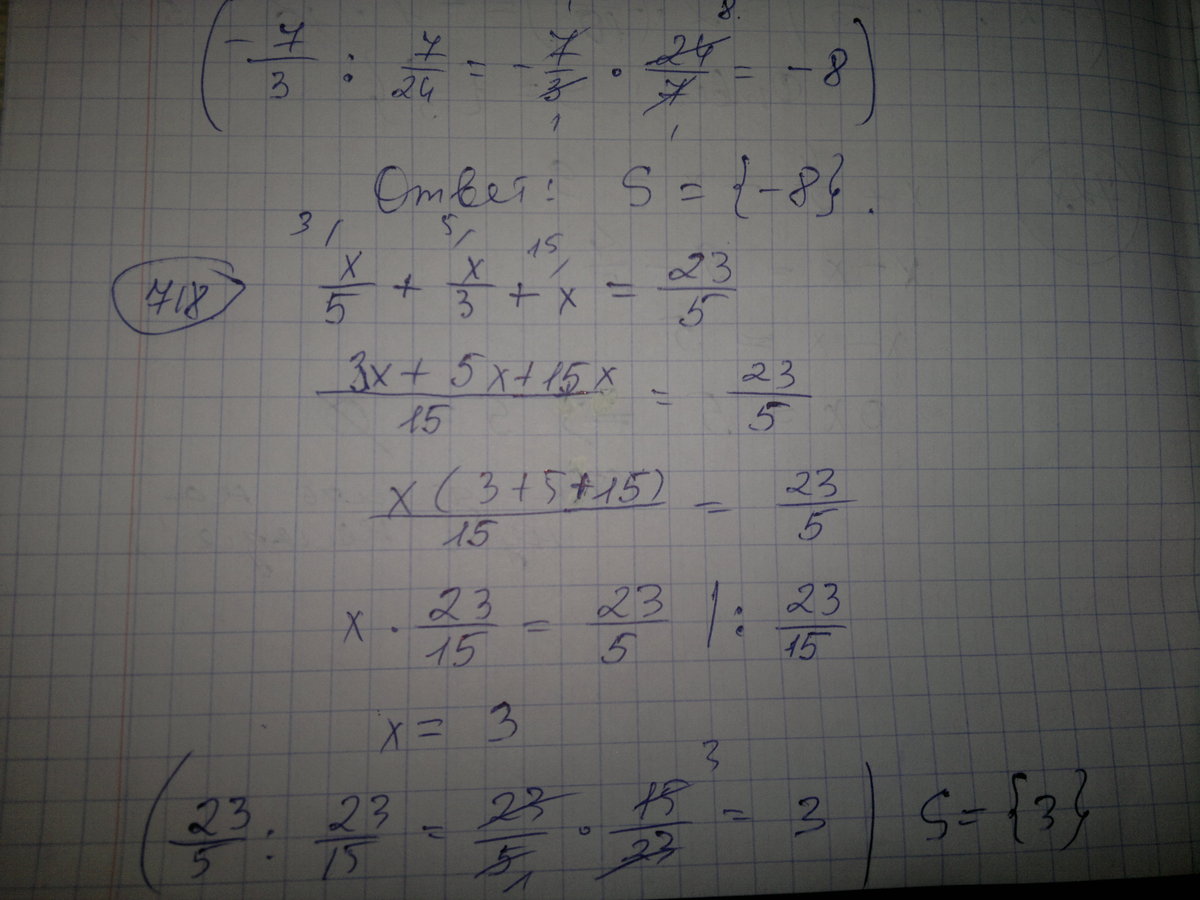 (-7/3 : 7/24 = -7/3 · 24/7 = -8)
Ответ: S = {-8}.
718 x/5 + x/3 + x = 23/5
(3x + 5x + 15x)/15 = 23/5
x(3+5+15)/15 = 23/5
x · 23/15 = 23/5 |: 23/15
x = 3
(23/5 : 23/15 = 23/5 · 15/23 = 3) S = {3}